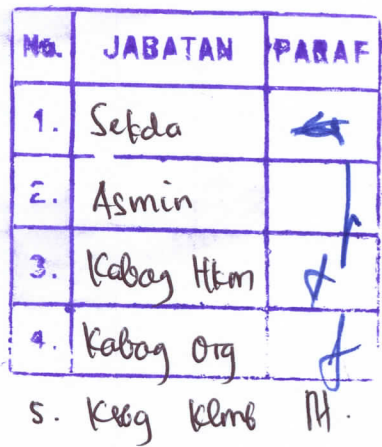 No. JABATAN PARAF
1. Sekda
2. Asmin
3. Kabag Hkm
4. Kabag Org
5.